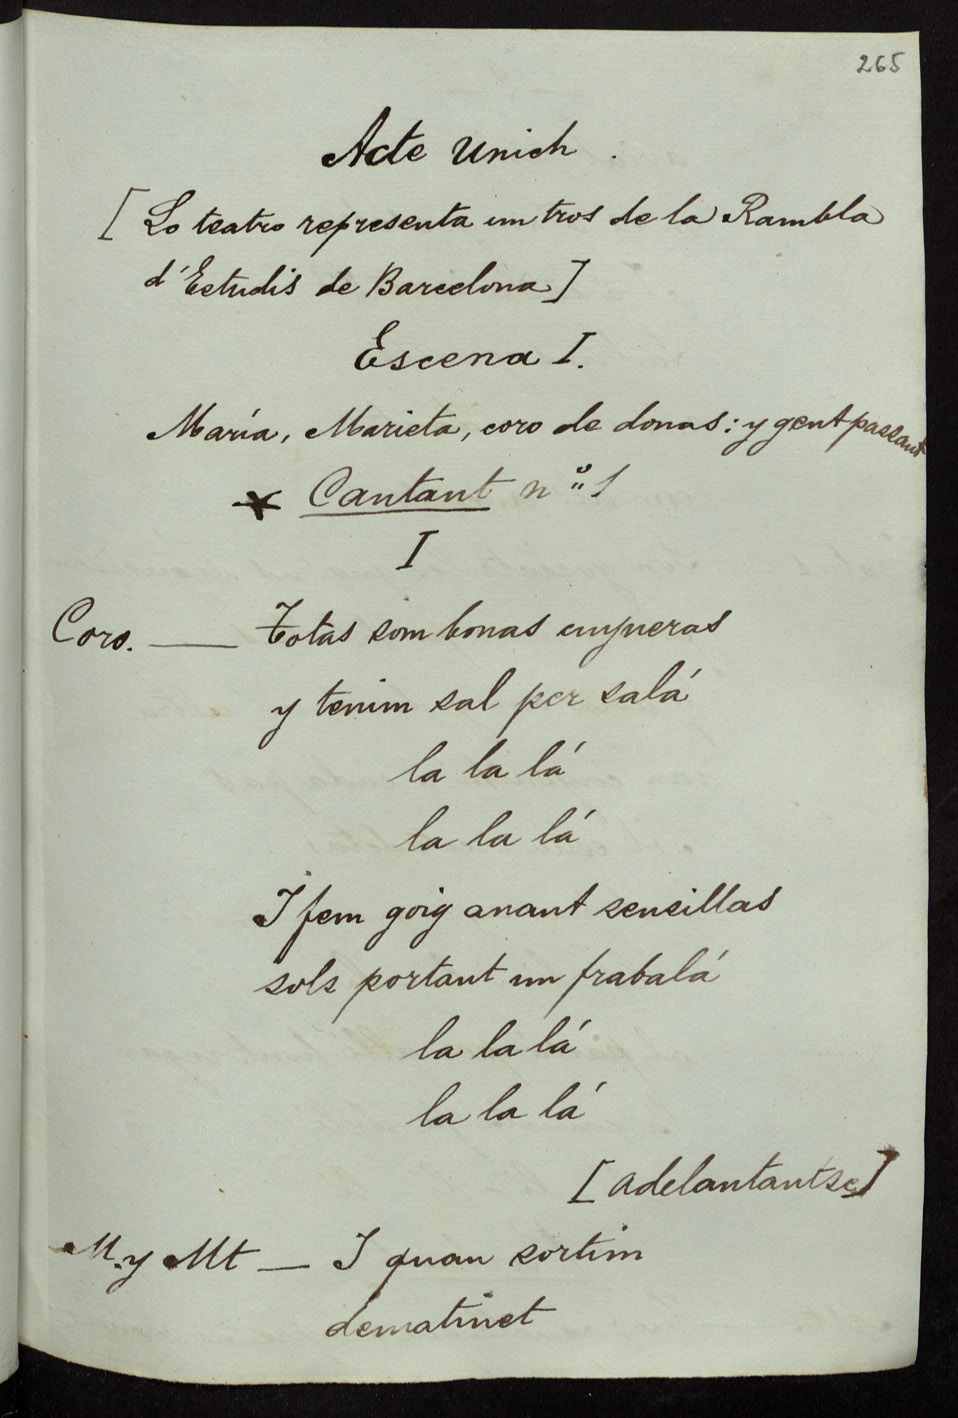 265
Acte Unich.
[Lo teatro representa un tros de la Rambla
d'Estudis de Barcelona]
Escena I.
María, Marieta, coro de donas: y gent passant
Cantant nº 1
I
Coro. — Totas som bonas cuyneras
y tenim sal per salá
la la lá
la la lá
I fem goig anant sensillas
sols portant un frabalá
la la lá
la la lá
[adelantantse]
M. y Mt — I quan sortim
dematinet